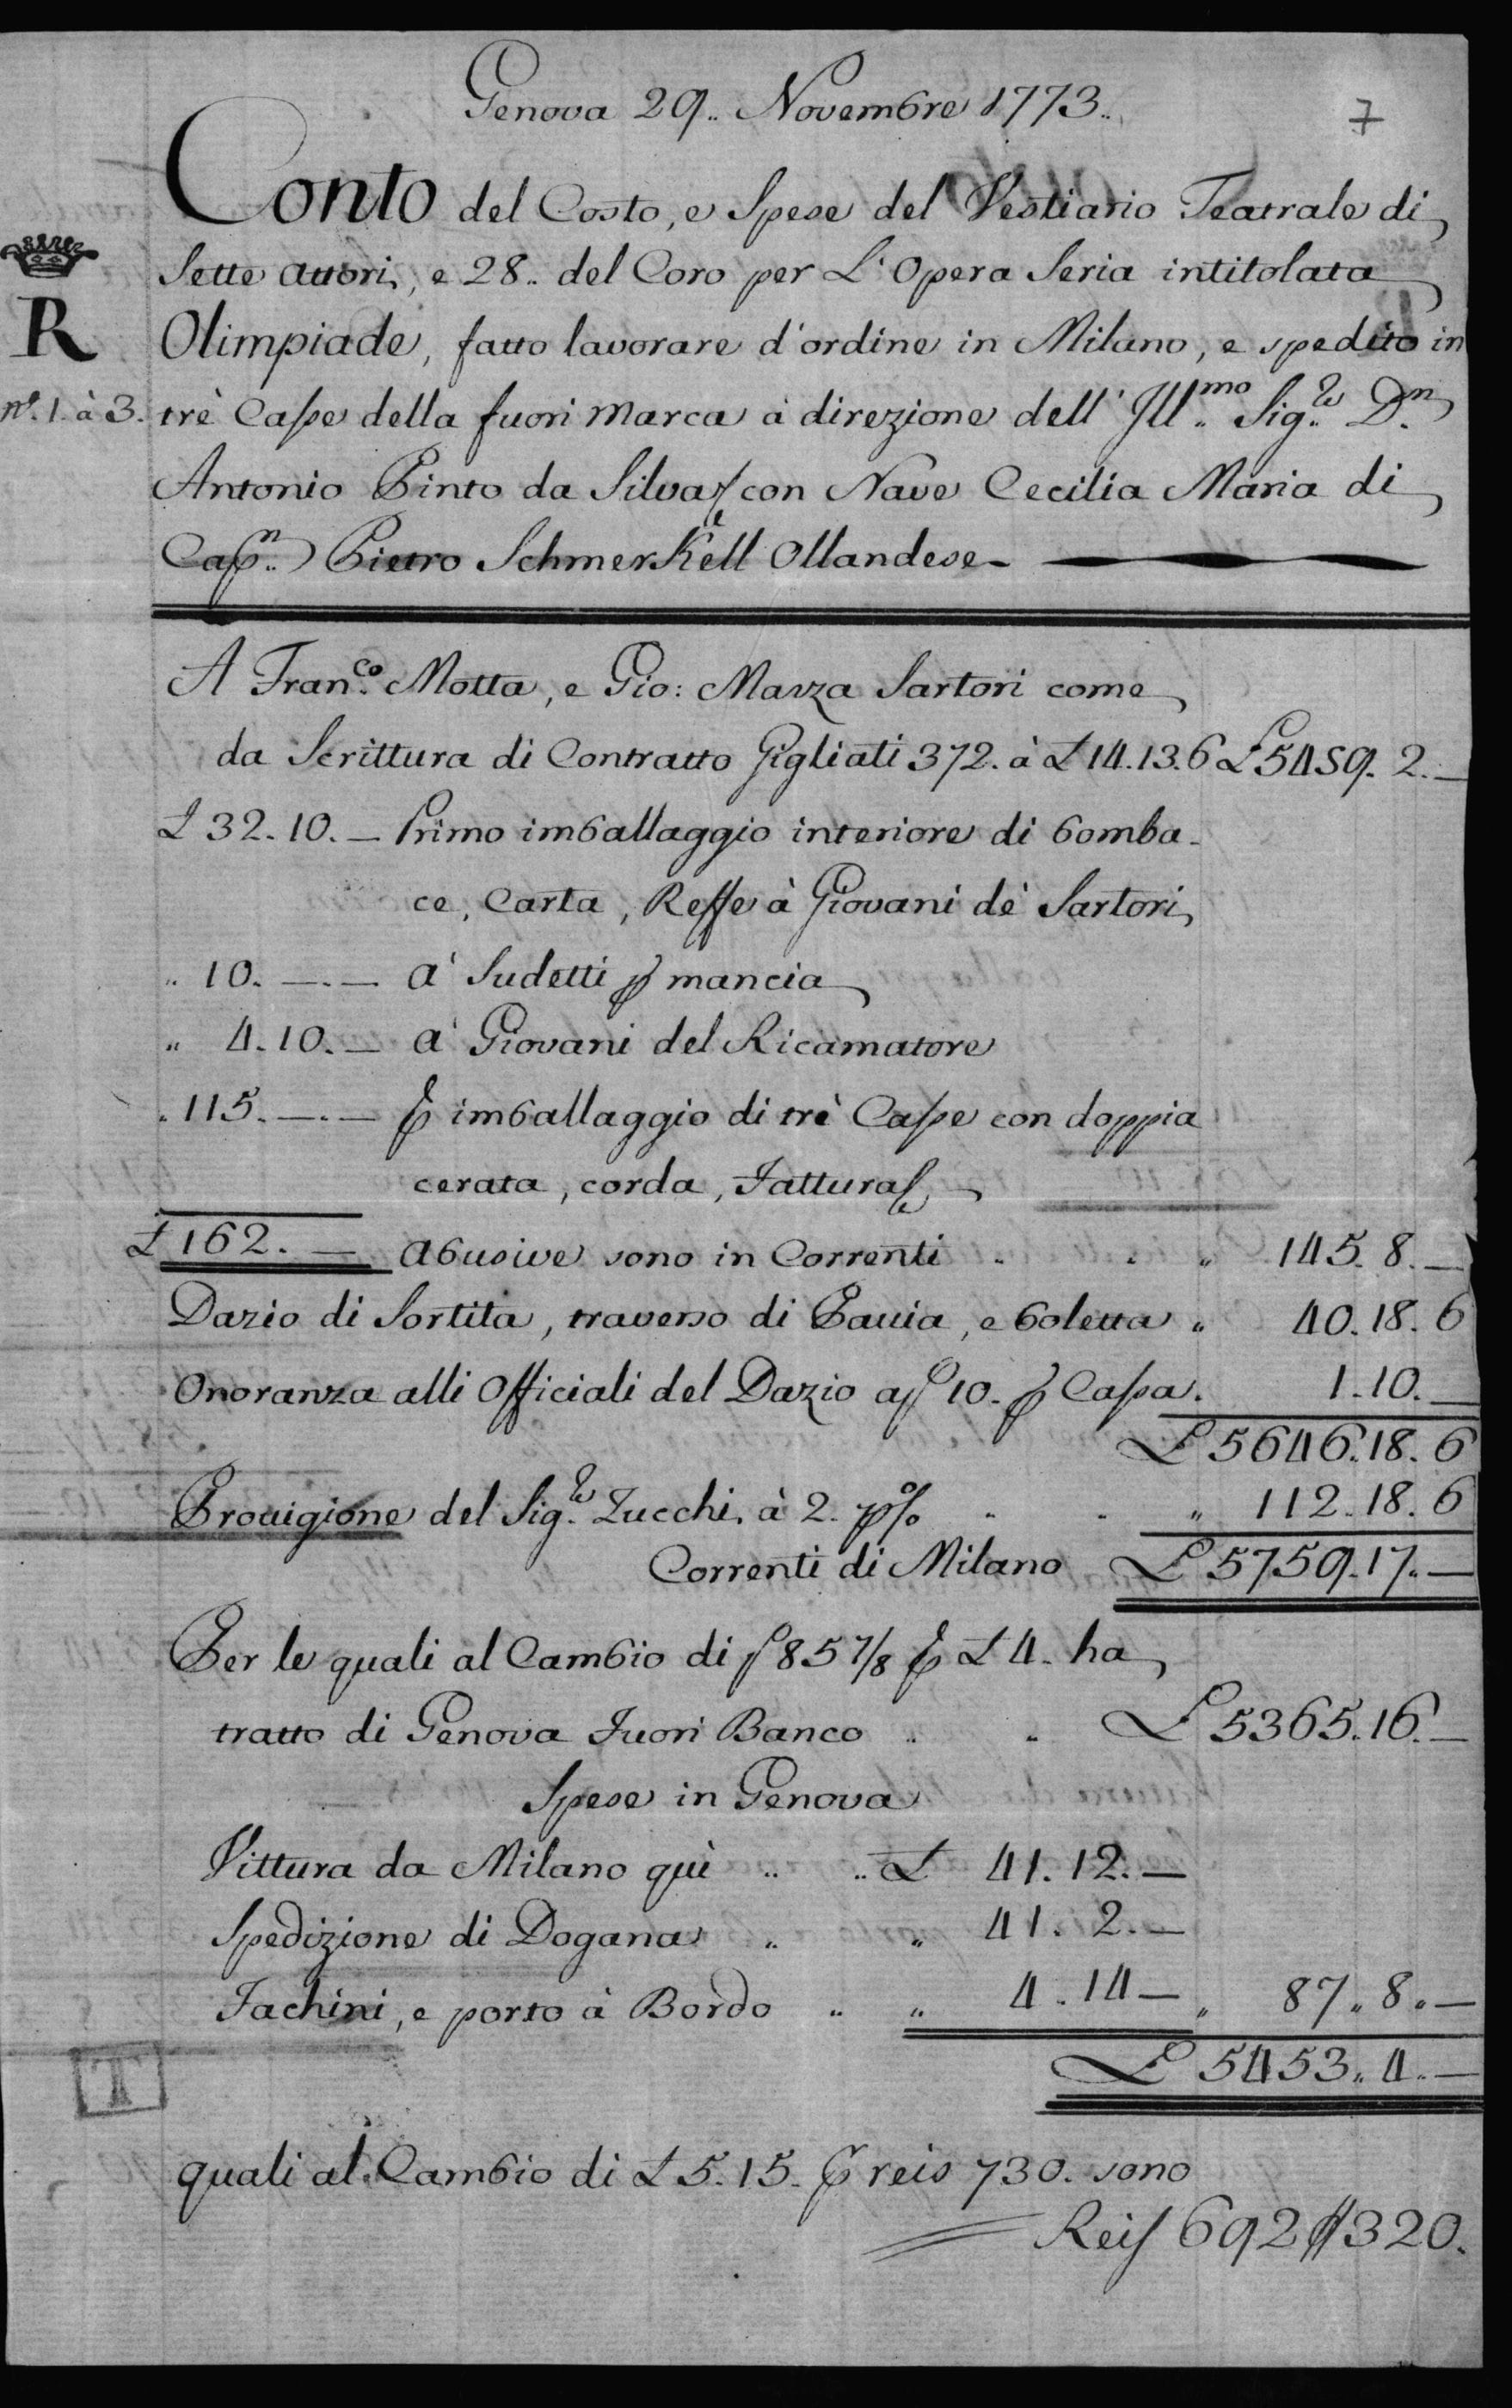 Genova 29.. Novembre 1773..
7
Conto del Costo, e Spese del Vestiario Teatrale di
Sette Attori, e 28.. del Coro per L'Opera Seria intitolata
R
Olimpiade, fatto lavorare d'ordine in Milano, e spedito in
nº. 1. à 3. trè Casse della fuori marca à direzione dell' Ill.mo Sig.re D.n
Antonio Pinto da Silva con Nave Cecilia Maria di
Cap.n Pietro Schmerkell Ollandese
A Fran.co Motta, e Gio: Mazza Sartori come
da Scrittura di Contratto Gigliati 372. à £ 14.13.6 £ 5459. 2.—
£ 32. 10. — Primo imballaggio interiore di bomba-
ce, Carta, Reffe à Giovani dè Sartori
" 10. —.— a' Sudetti p mancia
" 4. 10. — a' Giovani del Ricamatore
" 115. —.— p imballaggio di trè Casse con doppia
cerata, corda, Fattura
£ 162. — Abusive sono in Correnti " 145. 8. —
Dazio di Sortita, traverso di Pavia, e boletta " 40. 18. 6
Onoranza alli Officiali del Dazio a s 10. p Cassa. 1. 10. —
£ 5646. 18. 6
Provigione del Sig.re Zucchi, à 2. p% " 112. 18. 6
Correnti di Milano £ 5759. 17. —
Per le quali al Cambio di s 85 7/8 p £ 4. ha
tratto di Genova Fuori Banco " £ 5365. 16. —
Spese in Genova
Vittura da Milano quì " " £ 41. 12. —
Spedizione di Dogana " " 41. 2. —
Fachini, e porto à Bordo " " 4. 14 — " 87. 8. —
£ 5453. 4. —
T
quali al Cambio di £ 5. 15. p reis 730. sono
Reis 692$320.